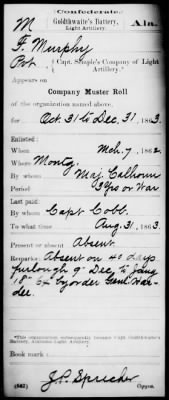 Confederate.
M Goldthwaite's Battery, Ala.
Light Artillery.
F. Murphy
Pvt, Capt. Semple's Company of Light
Artillery.*
Appears on
Company Muster Roll
of the organization named above,
for Oct. 31 to Dec. 31, 1863.
Enlisted:
When Mch. 7, 1862.
Where Montg.
By whom Maj. Calhoun
Period 3 Yrs or War
Last paid:
By whom Capt. Cobb.
To what time Aug. 31, 1863.
Present or absent Absent.
Remarks: Absent on 40 days
furlough 9" Dec, to Jany
18" 64 by order Genl Har-
dee.
*This organization subsequently became Capt. Goldthwaite's
Battery, Alabama Light Artillery.
Book mark:
J.P. Sprecher
(642) Copyist.